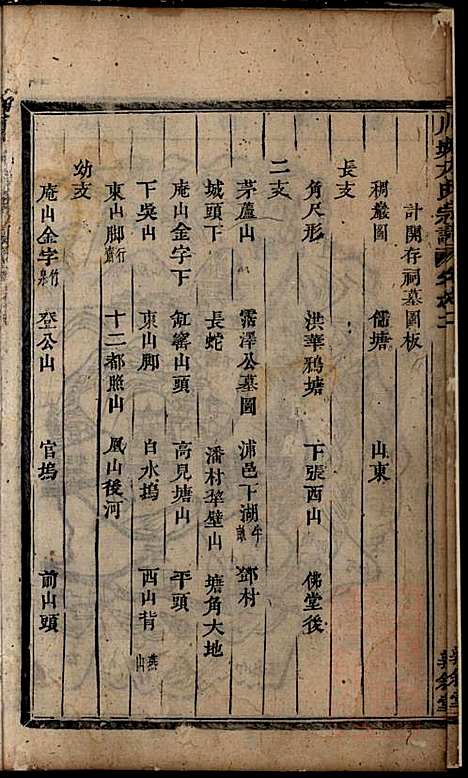 計開存祠墓圖板
稠巖圖 儒塘 山東
長支
角尺形 洪華鴉塘 下張西山 佛堂後
二支
茅蘆山 霑澤公墓圖 浦邑下湖 鄧村
城頭下 長蛇 潘村犂壁山 塘角大地
庵山金字下 缸窰山頭 高見塘山 平頭
下吳山 東山脚 白水塢 西山背 燕山
東山脚 十二都照山 鳳山後河
幼支
庵山金字 登公山 官塢 前山頭